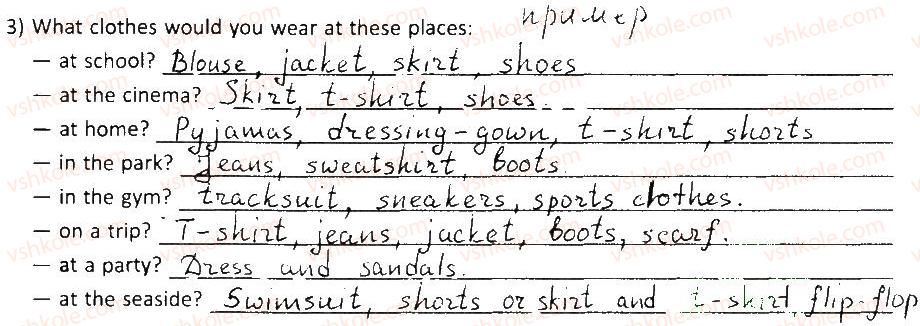 пример
3) What clothes would you wear at these places:
– at school? Blouse, jacket, skirt, shoes
– at the cinema? Skirt, t-shirt, shoes.
– at home? Pyjamas, dressing-gown, t-shirt, shorts
– in the park? Jeans, sweatshirt, boots.
– in the gym? tracksuit, sneakers, sports clothes.
– on a trip? T-shirt, jeans, jacket, boots, scarf.
– at a party? Dress and sandals.
– at the seaside? Swimsuit, shorts or skirt and t-skirt, flip-flop